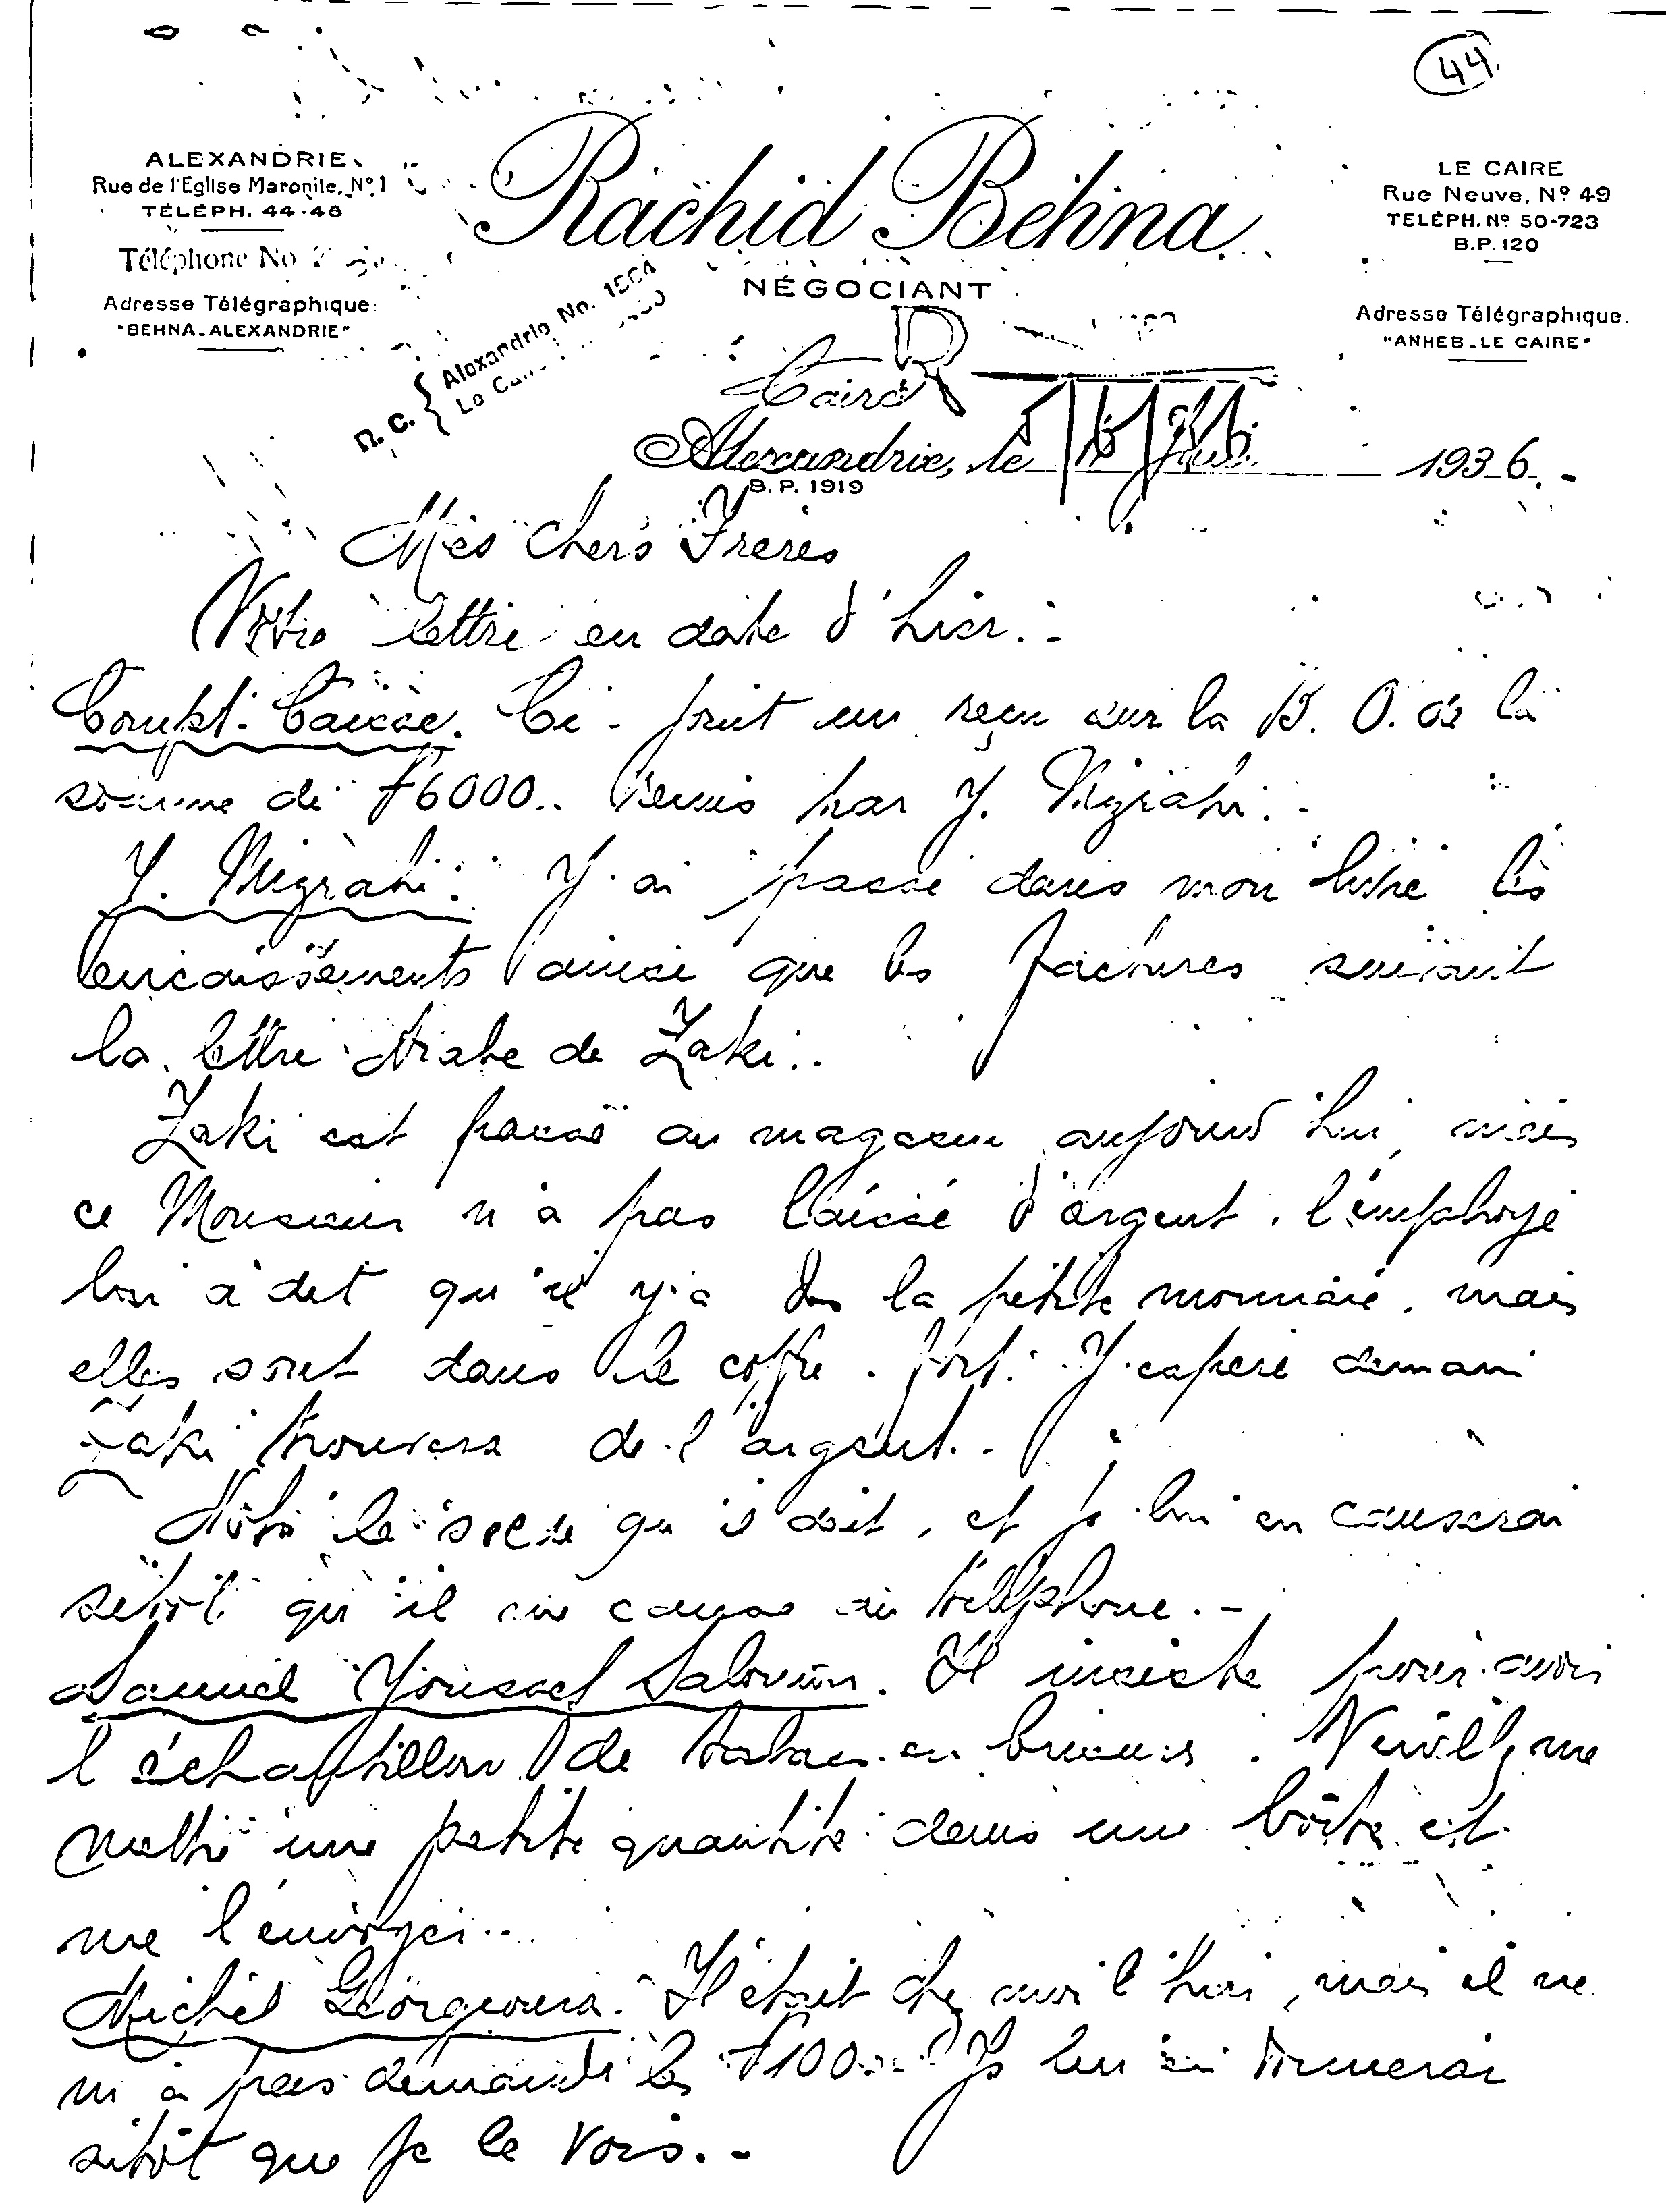 44.
ALEXANDRIE
Rue de l'Eglise Maronite, Nº 1
TÉLÉPH. 44-48
Téléphone No
Adresse Télégraphique:
"BEHNA-ALEXANDRIE"
Rachid Behna
NÉGOCIANT
LE CAIRE
Rue Neuve, Nº 49
TELÉPH. Nº 50-723
B.P. 120
Adresse Télégraphique.
"ANHEB-LE CAIRE"
R. C. { Alexandrie No.
Le
Caire
Alexandrie, le 1936.-
B. P. 1919
Mes Chers Frères
Votre lettre en date d'hier.-
Compt. Caisse. Ci-joint un reçu sur la B. O. de la
somme de £6000.. remis par Y. Mizrahi.-
Y. Mizrahi. J'ai passé dans mon livre les
encaissements ainsi que les factures suivant
la lettre Arabe de Zaki..
Zaki est passé au magasin aujourd'hui, mais
ce Monsieur n'a pas laissé d'argent. l'employé
lui a dit qu'il y'a de la petite monnaie. mais
elles sont dans le coffre-fort. J'espère demain
Zaki trouvera de l'argent.-
Noté le solde qu'il doit, et je lui en causerai
sitôt qu'il me cause au téléphone.-
Samuel Youssef Salomon. Il insiste pour avoir
l'échantillon de tabac en . Veuillez me
mettre une petite quantité dans une boîte et
me l'envoyer..
Michel Georgeoura. Il était chez moi l'hier, mais il ne
m'a pas demandé les £100.- Je lui en donnerai
sitôt que je le vois.-